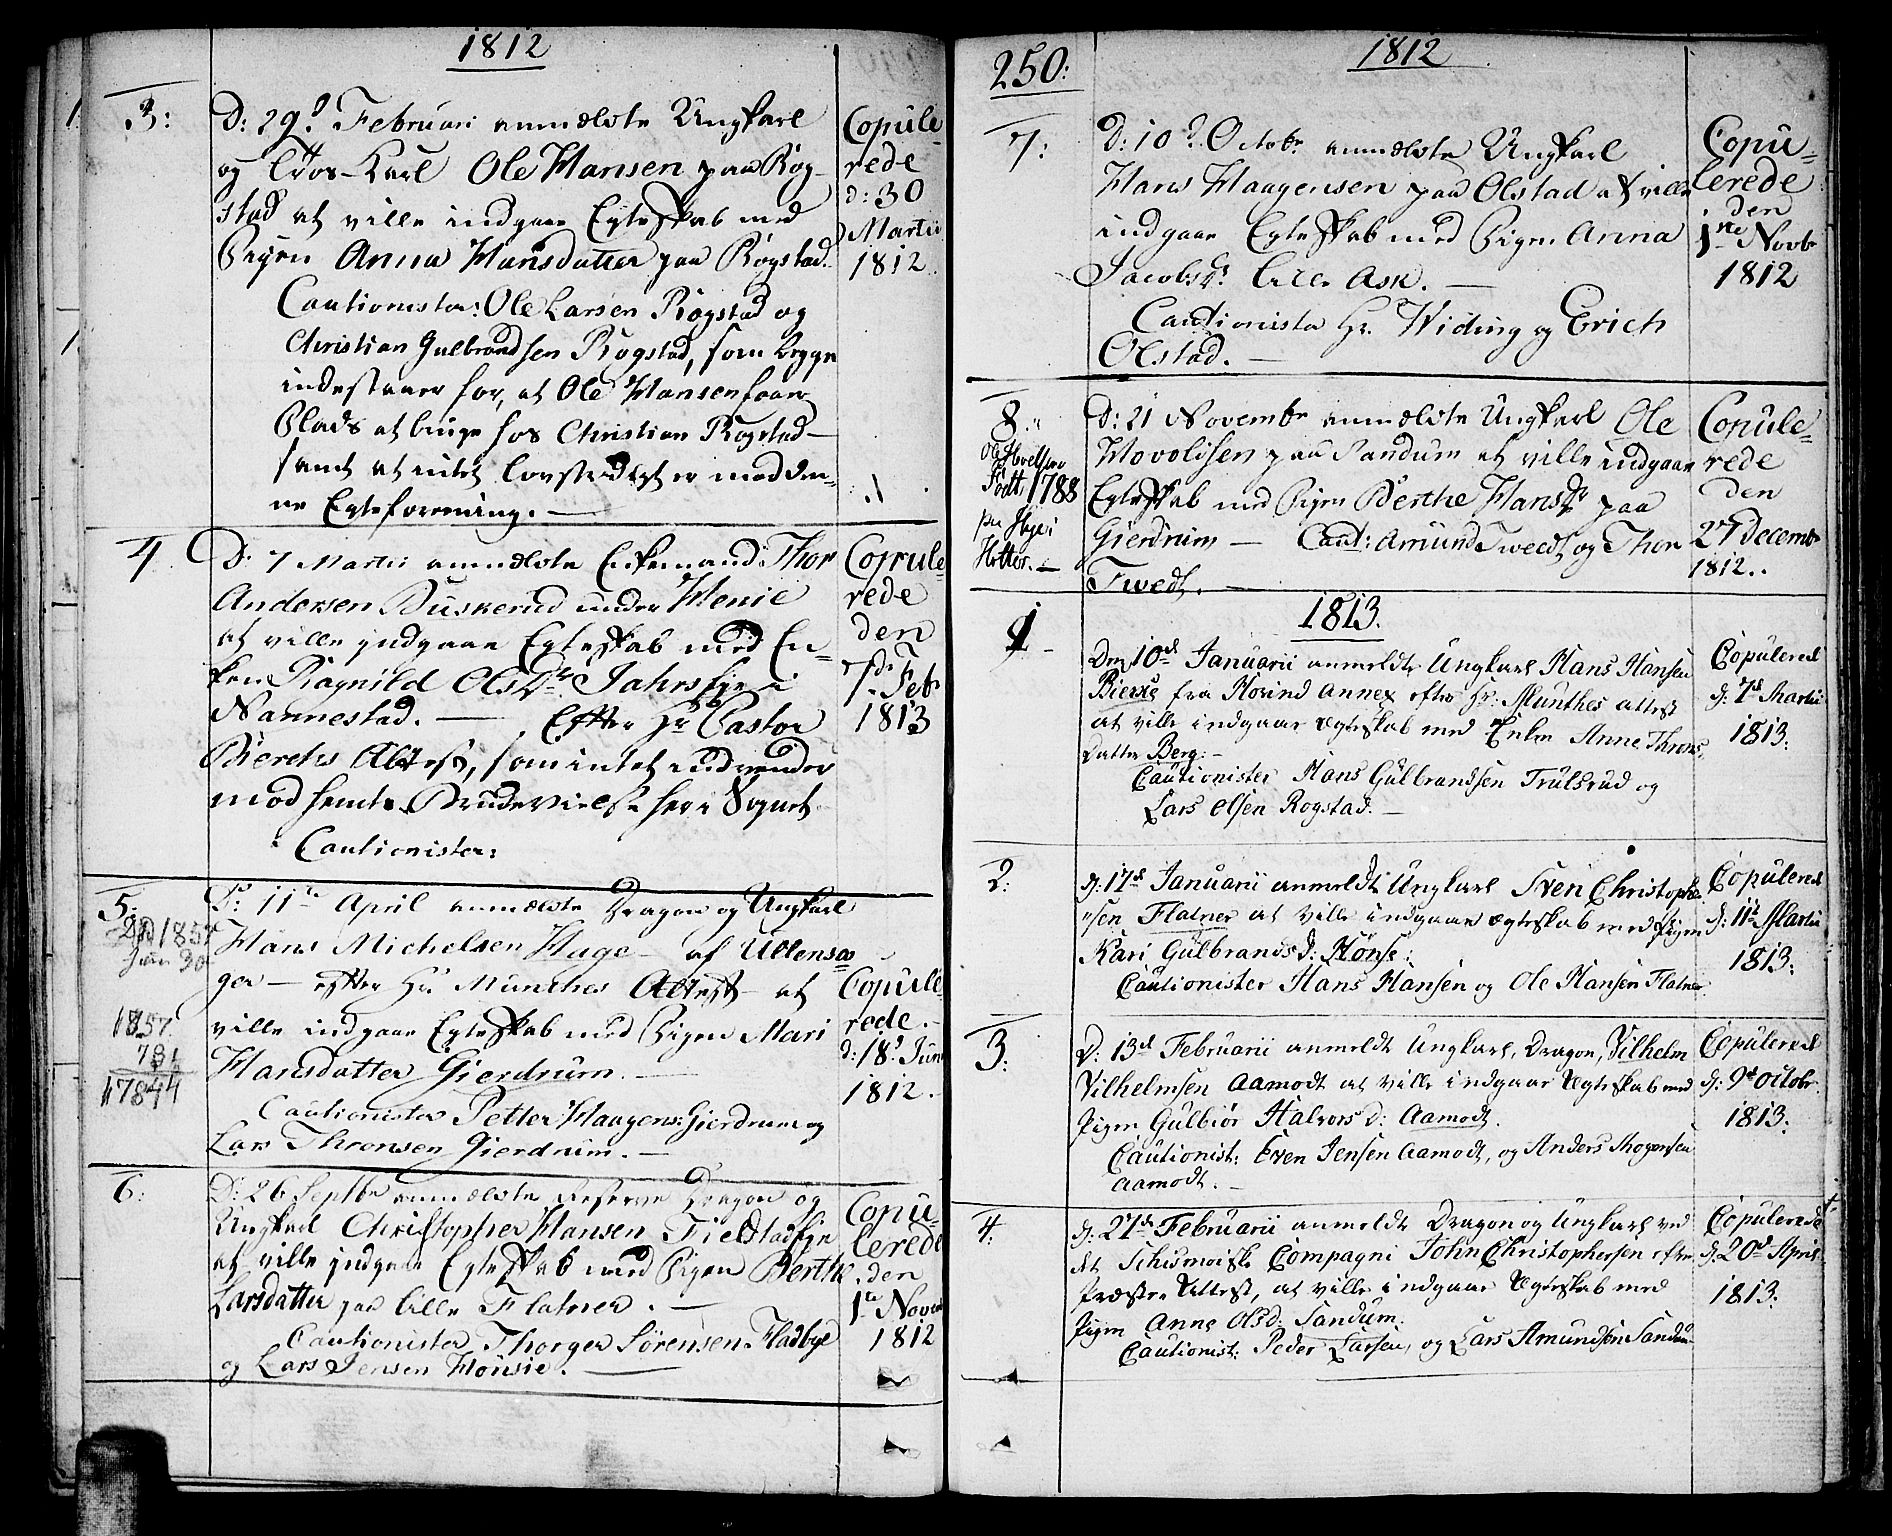 1812
3:
D: 29d Februari anmældte Ungkarl
og Tros-Karl Ole Hansen paa Røg-
stad at ville indgaae Egteskab med
Pigen Anna Hansdatter paa Røgstad.
Cautionister: Ole Larsen Røgstad og
Christian Gulbrandsen Rogstad, som begge
indestaaer for, at Ole Hansen faaer
Plads at boe hos Christian Rogstad
samt at intet er mod den-
ne Egteforening. —
Copule-
rede
d: 30
Martii
1812.
4
D: 7 Martii anmældte Enkemand Thor
Andersen Buskerud under Henie
at ville indgaae Egteskab med En-
ken Ragnild Olsdr Jahrs i
Nannestad. — Efter Hr Pastor
Attest, som intet indvender
mod Brudevielse her i Sognet
Cautionister:
Copule-
rede
den
7de Feb
1813
5:
Død 1857
Jan 30
1857
781
17844
D: 11te April anmældte Dragon og Ungkarl
Hans Michelsen Hage — af Ullensa-
ger — efter Hr. Munches Attest — at
ville indgaae Egteskab med Pigen Mari
Hansdatter Gierdrum. —
Cautionister Petter Haagens: Gierdrum og
Lars Thronsen Gierdrum. —
Copule-
rede. —
d: 18d Juni
1812.
6:
D: 26 Septbr anmældte Reserve Dragon og
Ungkarl Christopher Hansen Fieldstad
at ville indgaae Egteskab med Pigen Berthe
Larsdatter paa lille Flatner. —
Cautionister Thorger Sörensen Fladbye
og Lars Jensen Hönsie. —
Copu-
lerede
den
1te Novem
1812
250:
1812
7:
D: 10d Octobr anmældte Ungkarl
Hans Haagensen paa Olstad at ville
indgaae Egteskab med Pigen Anna
Jacobsdr lille Ask. —
Cautionister Hr. Widing og Erich
Olstad. —
Copu-
lerede
den
1ste Novbr
1812
8:
Ole
Født 1788
paa
D: 21 Novembr anmældte Ungkarl Ole
Hovoldsen paa Sandum at ville indgaae
Egteskab med Pigen Berthe Hansdr paa
Gierdrum — Caut: Amund Twedt og Thor
Twedt. —
Copule-
rede
den
27 Decembr
1812..
1813.
1
Den 10d Januarii anmeldte Ungkarl Hans Hansen
Bierke fra Hovind Annex efter Hr: Munthes attest
at ville indgaae Ægteskab med Enken Anne Throns
datter Berg: —
Cautionister Hans Gulbrandsen Trulsrud og
Lars Olsen Rogstad. —
Copulered
d: 7d Martii
1813:
2:
d: 17d Januarii anmeldte Ungkarl Sven Christophe-
rsen Flatner at ville indgaae Ægteskab med Pigen
Kari Gulbrandsd: Hönse:
Cautionister Hans Hansen og Ole Hansen Flatner
Copulered
d: 11d Martii
1813:
3:
D: 13d Februarii anmeldt Ungkarl, Dragon, Vilhelm
Vilhelmsen Aamodt at ville indgaae Ægteskab med
Pigen Gulbiör Halvorsd: Aamodt.
Cautionist: Even Jensen Aamodt, og Anders Thogersen
Aamodt. —
Copulered
d: 9d octobr.
1813:
4:
d: 27d Februarii anmeldt Dragon og Ungkarl ved
det Schismoiske Compagni John Christophersen efter
Præstens Attest, at ville indgaae Ægteskab med
Pigen Anne Olsd: Sandum.
Cautionist: Peder Larsen, og Lars Amundsen Sandum
Copulerede
d: 20d April
1813: